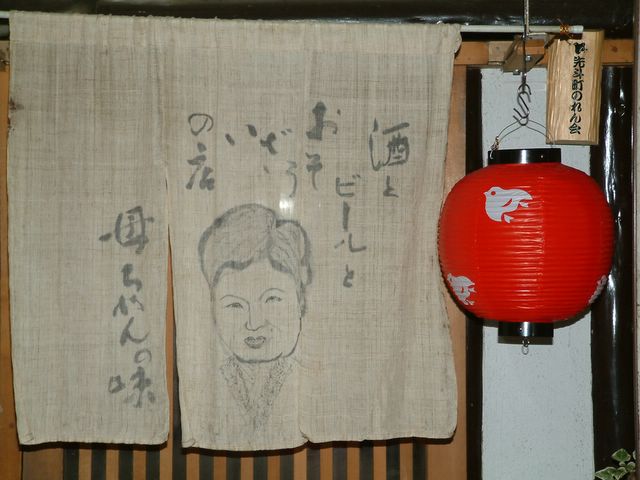 酒と
ビールと
おそうざい
の店
母ちゃんの味
先斗町のれん会